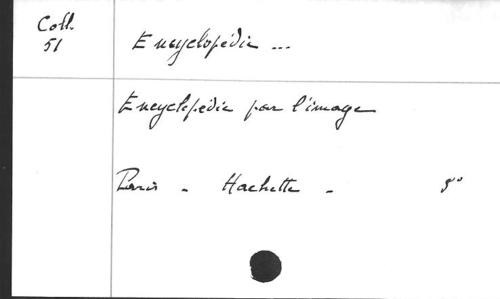 Coll.
51
Encyclopédie ...
Encyclopédie par l'image
Paris - Hachette - 8°